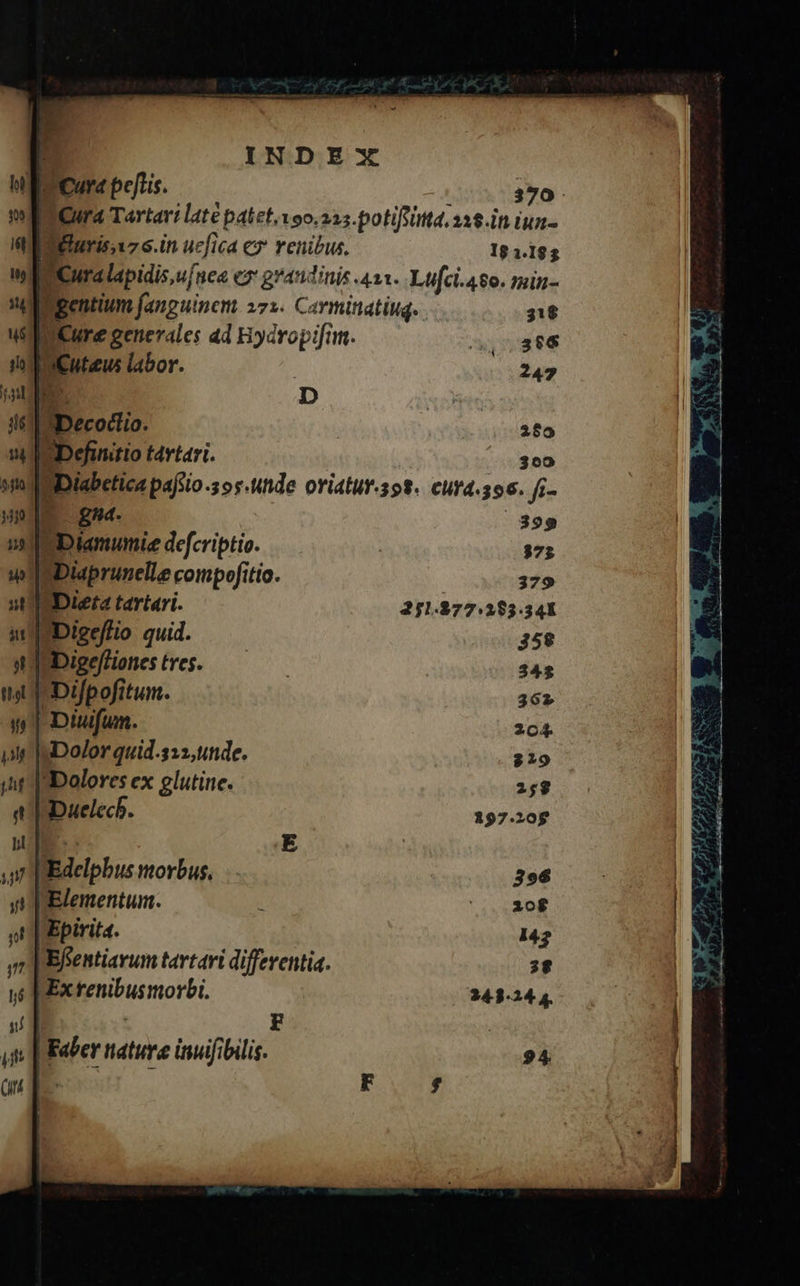 INDEX
Cura pestis. 370
Cura Tartari latè patet. 190.223. potissima. 228. in iun-
cturis, 176. in uesica & renibus. 182.183
Cura lapidis, usnea & grandinis. 421. Lusci. 480. min-
gentium sanguinem 271. Carminatiuę. 318
Curæ generales ad Hydropisim. 386
Cutæus labor. 247
D
Decoctio. 280
Definitio tartari. 300
Diabetica passio. 395. unde oriatur. 398. cura. 396. si-
gna. 399
Diamumiæ descriptio. 373
Diaprunellæ compositio. 379
Diæta tartari. 251.277.283.341
Digestio quid. 358
Digestiones tres. 343
Dispositum. 362
Diuisum. 204
Dolor quid. 322, unde. 329
Dolores ex glutine. 258
Duelech. 197.205
E
Edelphus morbus. 396
Elementum. 208
Epirita. 143
Essentiarum tartari differentia. 38
Ex renibus morbi. 243.244
F
Faber naturæ inuisibilis. 94
F 5